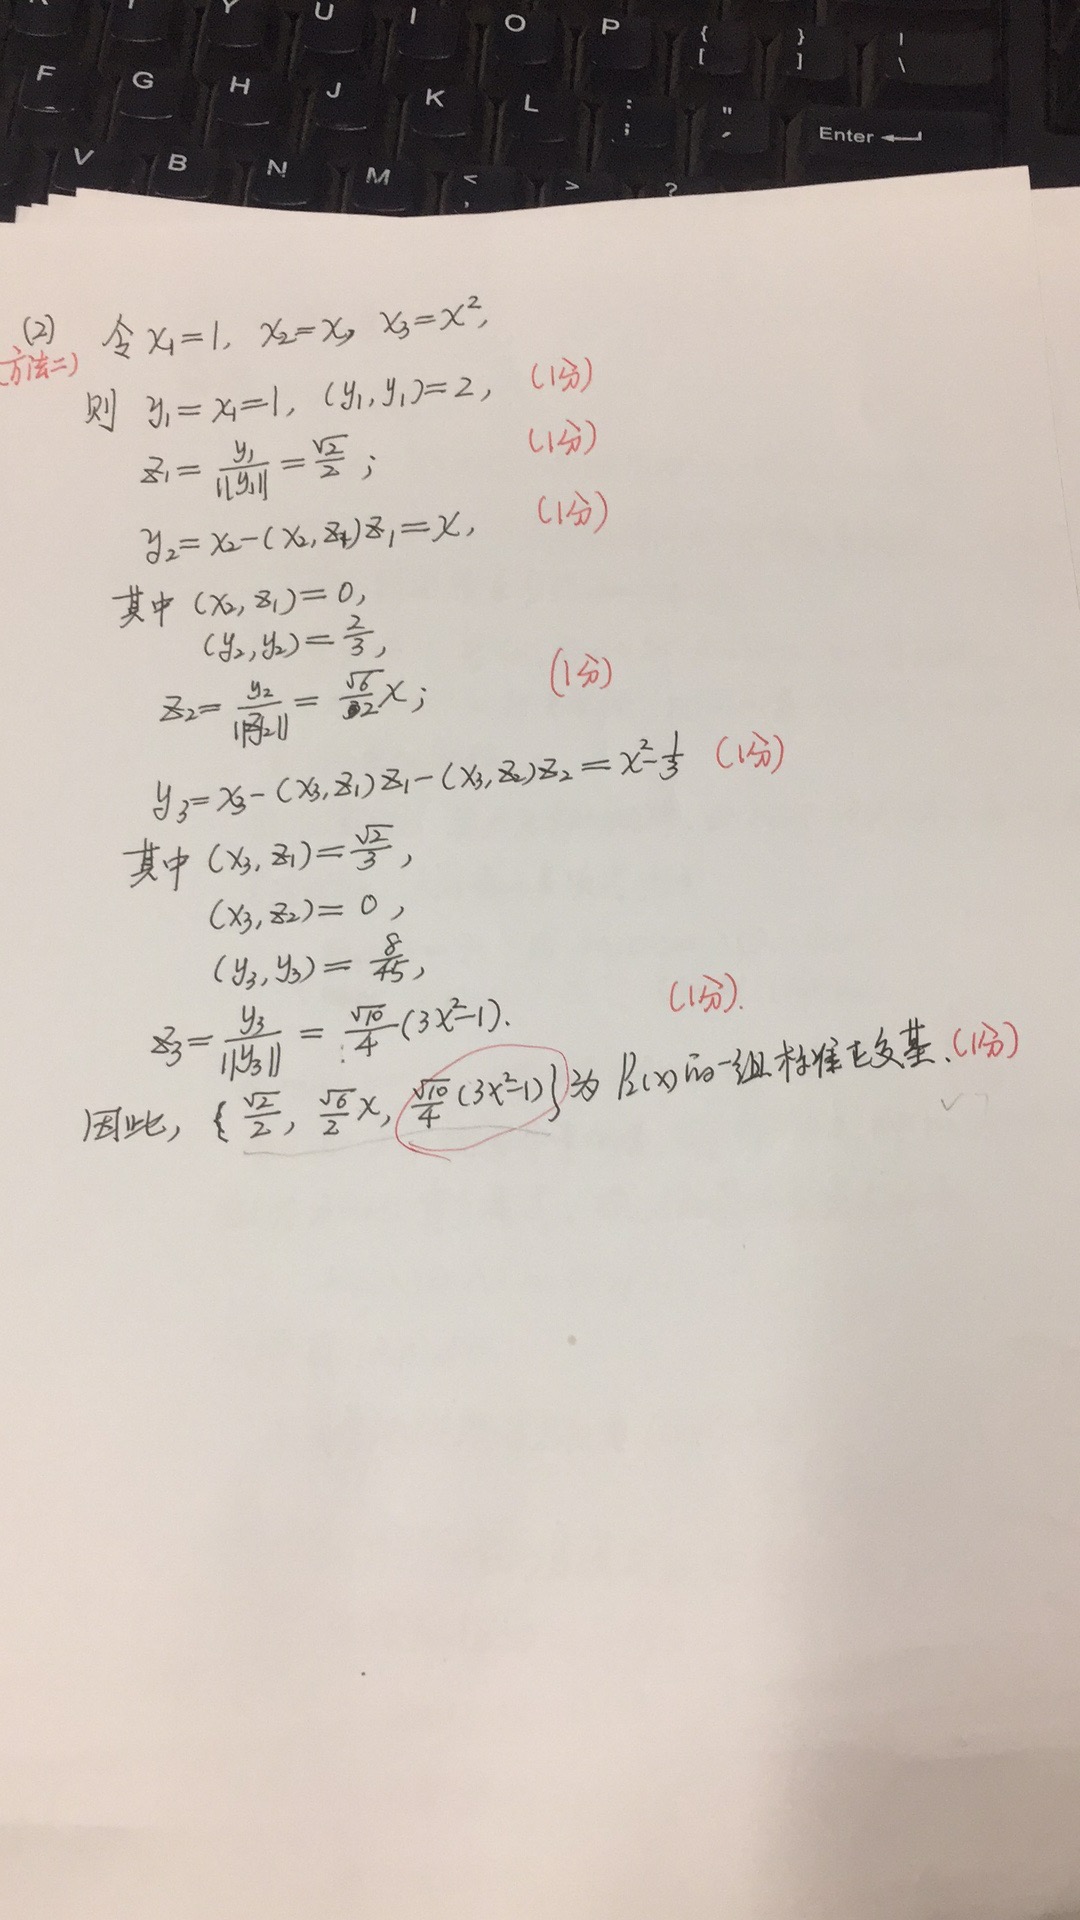 U I O P { [ } ] | \
F G H J K L : ; " ' Enter
V B N M < , > ?
(2) 令 x₁=1, x₂=x, x₃=x²,
(方法二)
则 y₁=x₁=1, (y₁,y₁)=2, (1分)
z₁=y₁/||y₁||=√2/2; (1分)
y₂=x₂-(x₂,z₁)z₁=x, (1分)
其中 (x₂,z₁)=0,
(y₂,y₂)=2/3,
z₂=y₂/||y₂||=√6/2 x; (1分)
y₃=x₃-(x₃,z₁)z₁-(x₃,z₂)z₂=x²-1/3 (1分)
其中 (x₃,z₁)=√2/3,
(x₃,z₂)=0,
(y₃,y₃)=8/45,
z₃=y₃/||y₃||=√10/4(3x²-1). (1分).
因此, {√2/2, √6/2 x, √10/4(3x²-1)}为 P₂(x)的一组标准正交基. (1分)